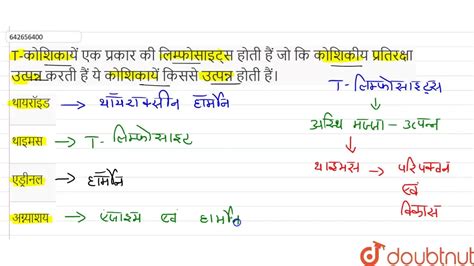 642656400
T-कोशिकायें एक प्रकार की लिम्फोसाइट्स होती हैं जो कि कोशिकीय प्रतिरक्षा
उत्पन्न करती हैं ये कोशिकायें किससे उत्पन्न होती हैं।
थायरॉइड → थॉयराक्सीन हॉर्मोन
थाइमस → T- लिम्फोसाइट
एड्रीनल → हॉर्मोन
अग्न्याशय → एंजाइम एवं हार्मोन
T - लिम्फोसाइट्स
↓
अस्थि मज्जा - उत्पन्न
↓
थाइमस → परिपक्वन
एवं
विकास
doubtnut